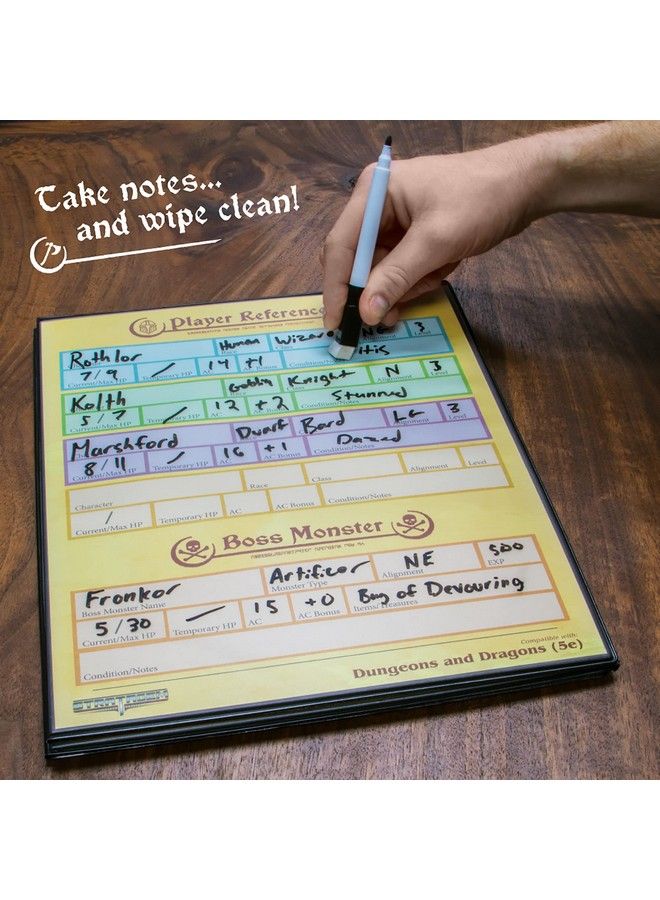 Take notes...
and wipe clean!
Player Reference
Rothlor Human Wizard NE 3
7/9 / 14 +1 itis
Current/Max HP Temporary HP AC Bonus Condition/Notes
Kolth Goblin Knight N 3
5/7 / 12 +2 Stunned
Current/Max HP Temporary HP AC AC Bonus Condition/Notes
Marshford Dwarf Bard LG 3
8/11 / 16 +1 Dazed
Current/Max HP Temporary HP AC AC Bonus Condition/Notes
Character Race Class Alignment Level
/
Current/Max HP Temporary HP AC AC Bonus Condition/Notes
Boss Monster
Fronkor Artificer NE 500
Boss Monster Name Monster Type Alignment EXP
5/30 — 15 +0 Bag of Devouring
Current/Max HP Temporary HP AC AC Bonus Items/Treasures
Condition/Notes
Compatible with:
Dungeons and Dragons (5e)